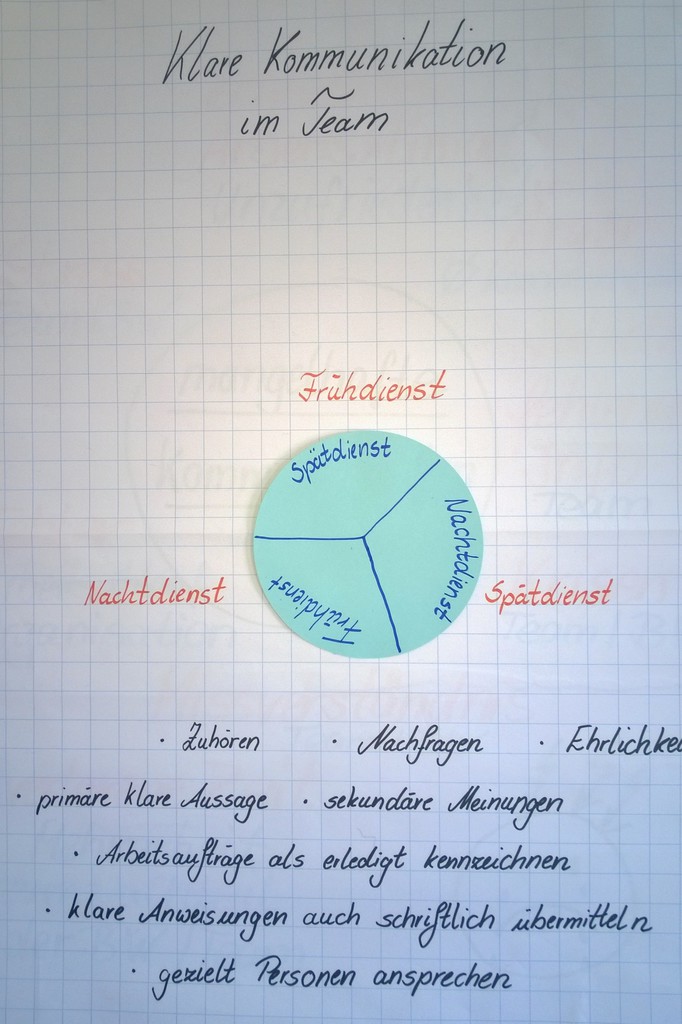 Klare Kommunikation
im Team
Frühdienst
Spätdienst
Nachtdienst
Frühdienst
Nachtdienst
Spätdienst
· Zuhören · Nachfragen · Ehrlichkei
· primäre klare Aussage · sekundäre Meinungen
· Arbeitsaufträge als erledigt kennzeichnen
· klare Anweisungen auch schriftlich übermitteln
· gezielt Personen ansprechen